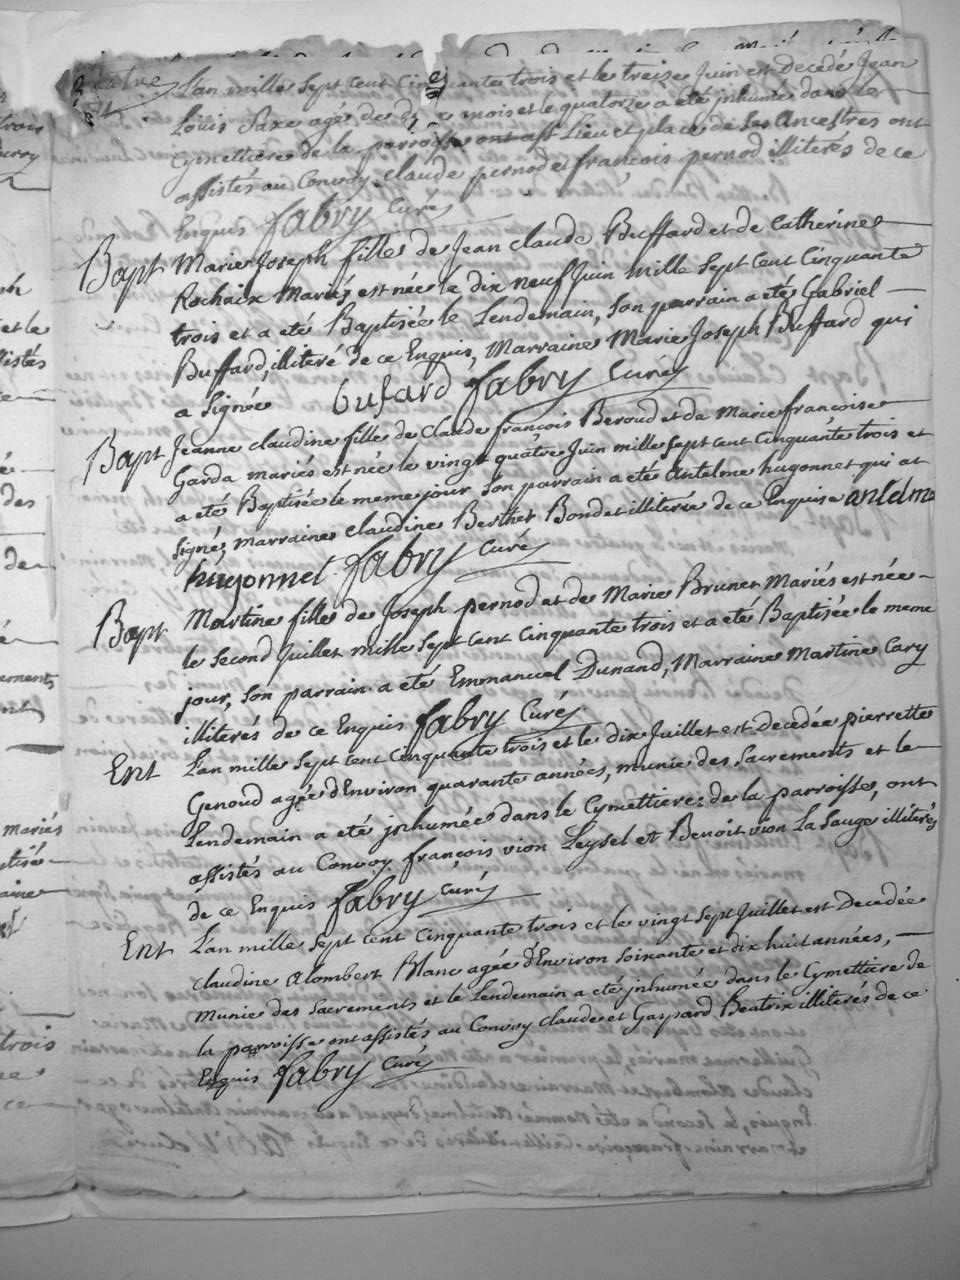 L'an mille Sept Cent Cinquante trois et le treize Juin est Decedé Jean
Louis Paxe agé de mois et le quatorze a été jnhumé dans le
Cymettiere de la parroisse Lieu et place de Ses Ancestres ont
assistés au Convoy claude pernod et francois pernod illiterés de ce
Enquis fabry Curé
Bapt Marie Joseph fille de Jean claude Buffard et de Catherine
Rochaix Mariés est née le dix neuf Juin mille Sept Cent Cinquante
trois et a été Baptisée le Lendemain, Son parrain a été Gabriel
Buffard, illiteré de ce Enquis, Marraine Marie Joseph Buffard qui
a Signée bufard fabry Curé
Bapt Jeanne claudine fille de claude francois Beroud et de Marie francoise
Garda mariés est née le vingt quatre Juin mille Sept Cent Cinquante trois et
a été Baptisée le meme jour Son parrain a été Antelme hugonnet qui at
Signé, marraine Claudine Berthet Bondet illiterée de ce Enquise antelme
hugonnet fabry Curé
Bapt Martine fille de Joseph pernod et de Marie Brunet Mariés est née
le Second Juillet mille Sept Cent Cinquante trois et a été Baptisée le meme
jour, Son parrain a été Emmanuel Dunand, Marraine Martine Cary
illiterés de ce Enquis fabry Curé
Ent L'an mille Sept Cent Cinquante trois et le dix Juillet est Decedée pierrette
Genoud agée d'Environ quarante années, munie des Sacrements et le
Lendemain a été jnhumée dans le Cymettiere de la parroisse, ont
assistés au Convoy francois vion Leysel et Benoit vion La Sauge illiterés
de ce Enquis fabry Curé
Ent L'an mille Sept Cent Cinquante trois et le vingt Sept Juillet est Decedée
claudine Alombert Blanc agée d'Environ Soixante et dix huit années,
Munie des Sacrements et le Lendemain a été jnhumée dans le Cymettiere de
la parroisse ont assistés au Convoy Claude et Gaspard Beatrix illiterés de ce
Enquis fabry Curé